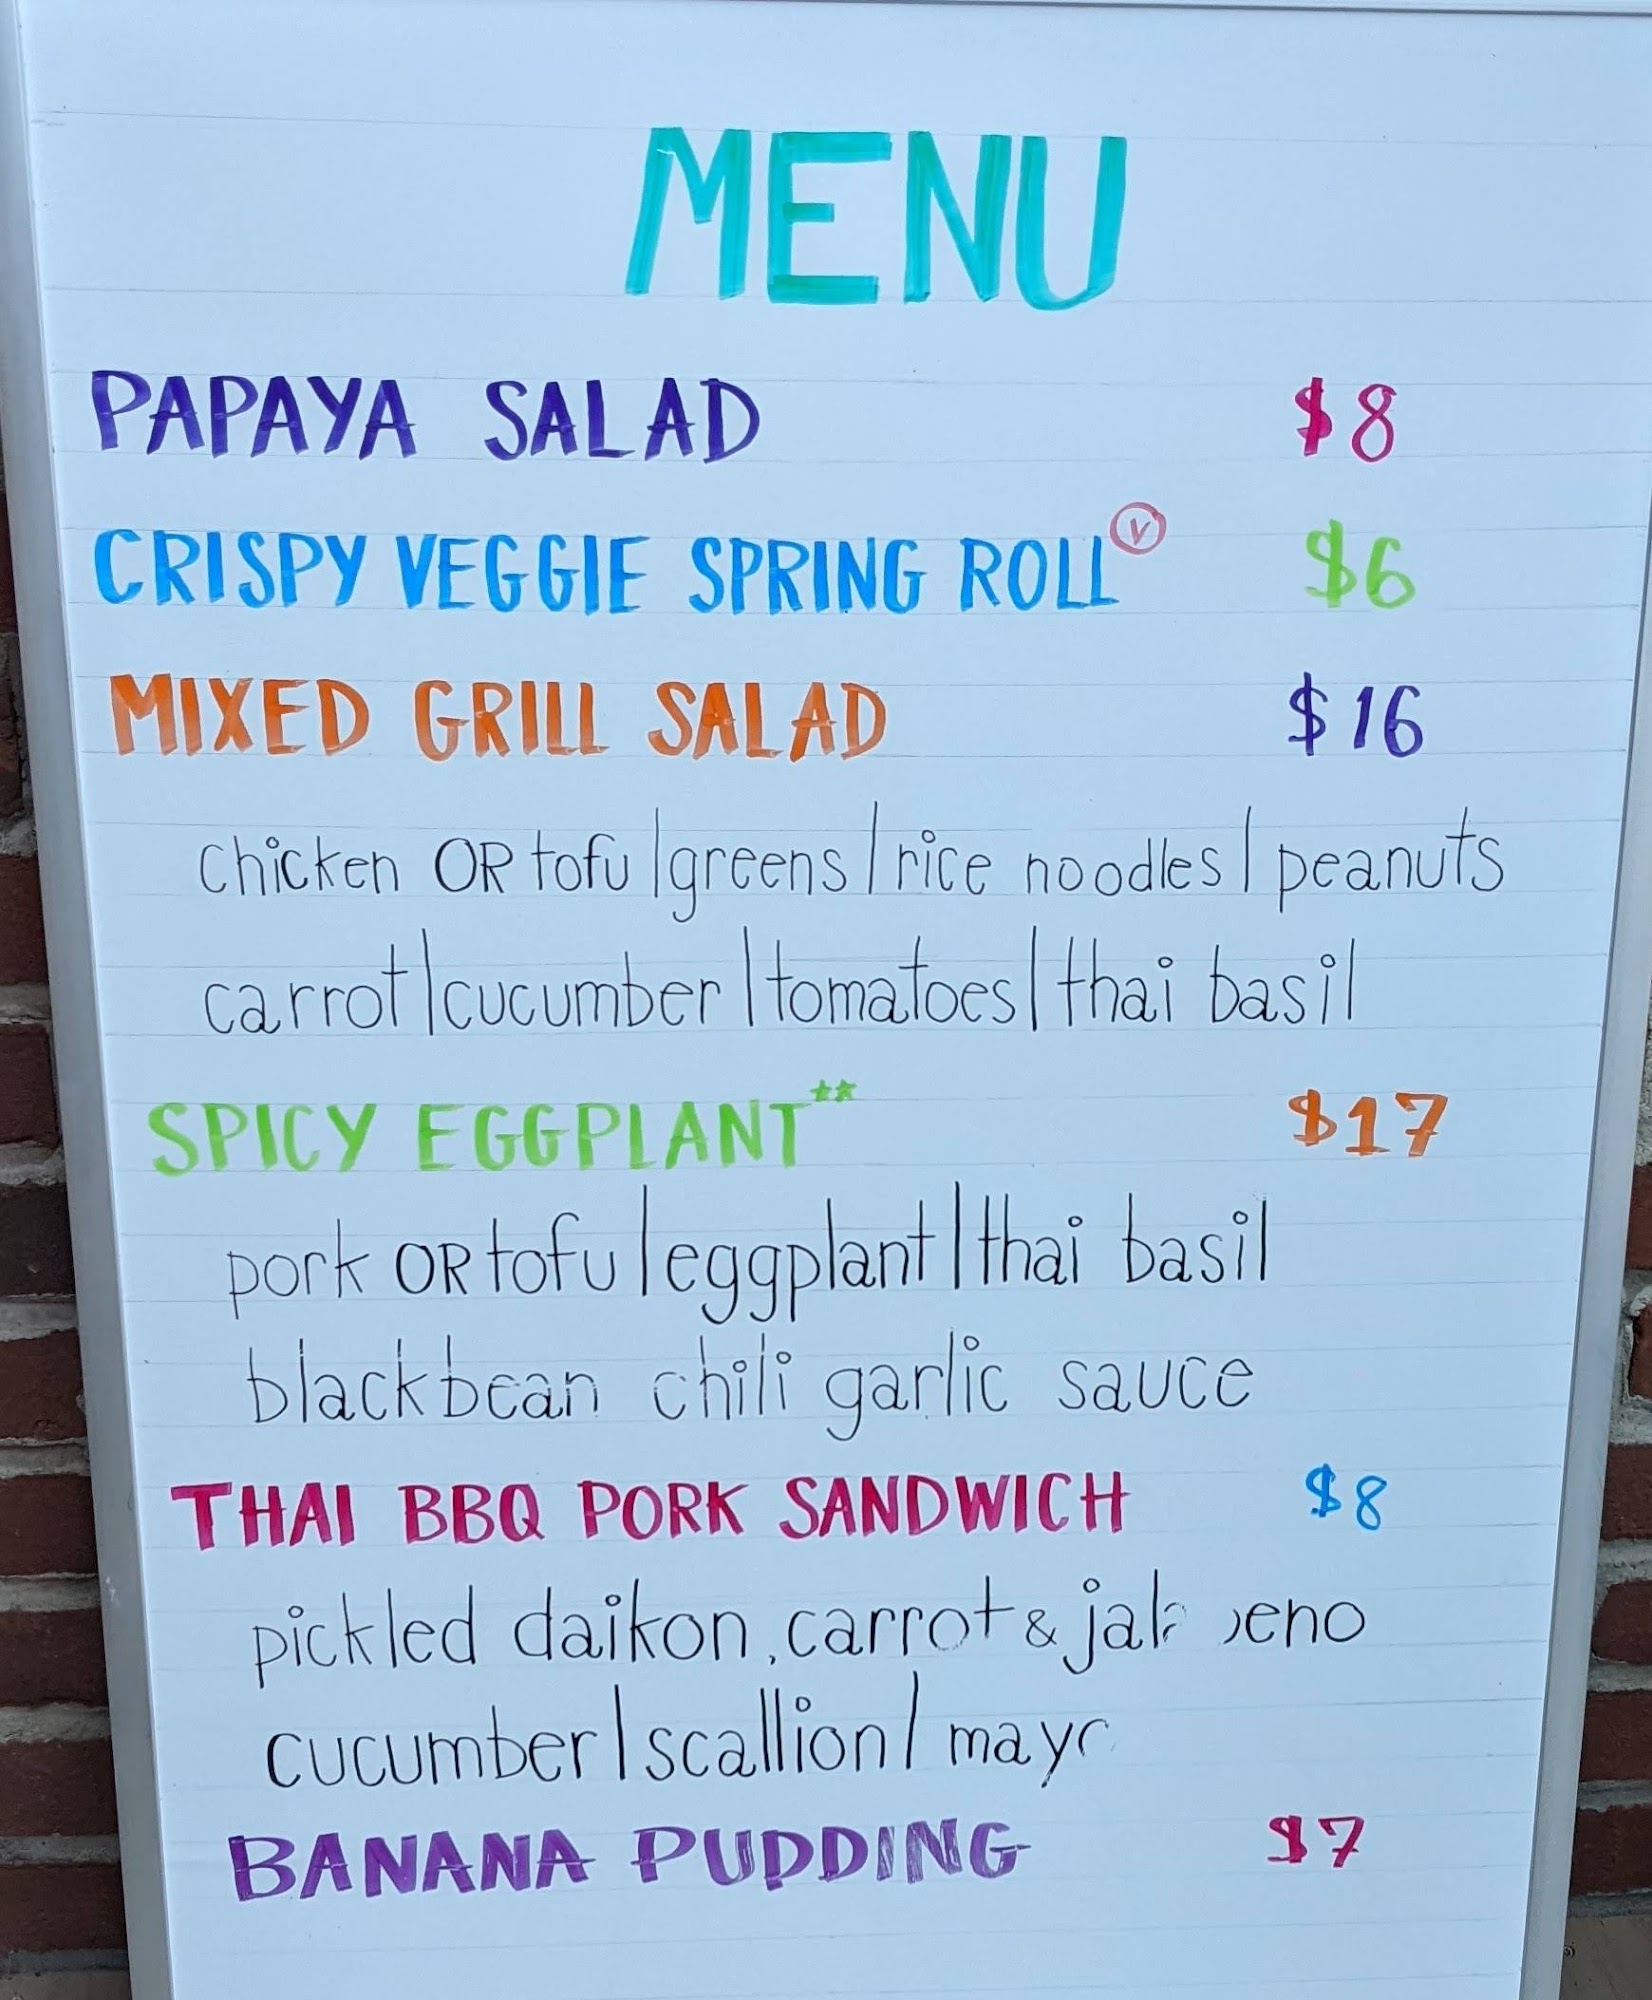 MENU
PAPAYA SALAD $8
CRISPY VEGGIE SPRING ROLL Ⓥ $6
MIXED GRILL SALAD $16
chicken OR tofu | greens | rice noodles | peanuts
carrot | cucumber | tomatoes | thai basil
SPICY EGGPLANT** $17
pork OR tofu | eggplant | thai basil
blackbean chili garlic sauce
THAI BBQ PORK SANDWICH $8
pickled daikon, carrot &
cucumber | scallion |
BANANA PUDDING $7